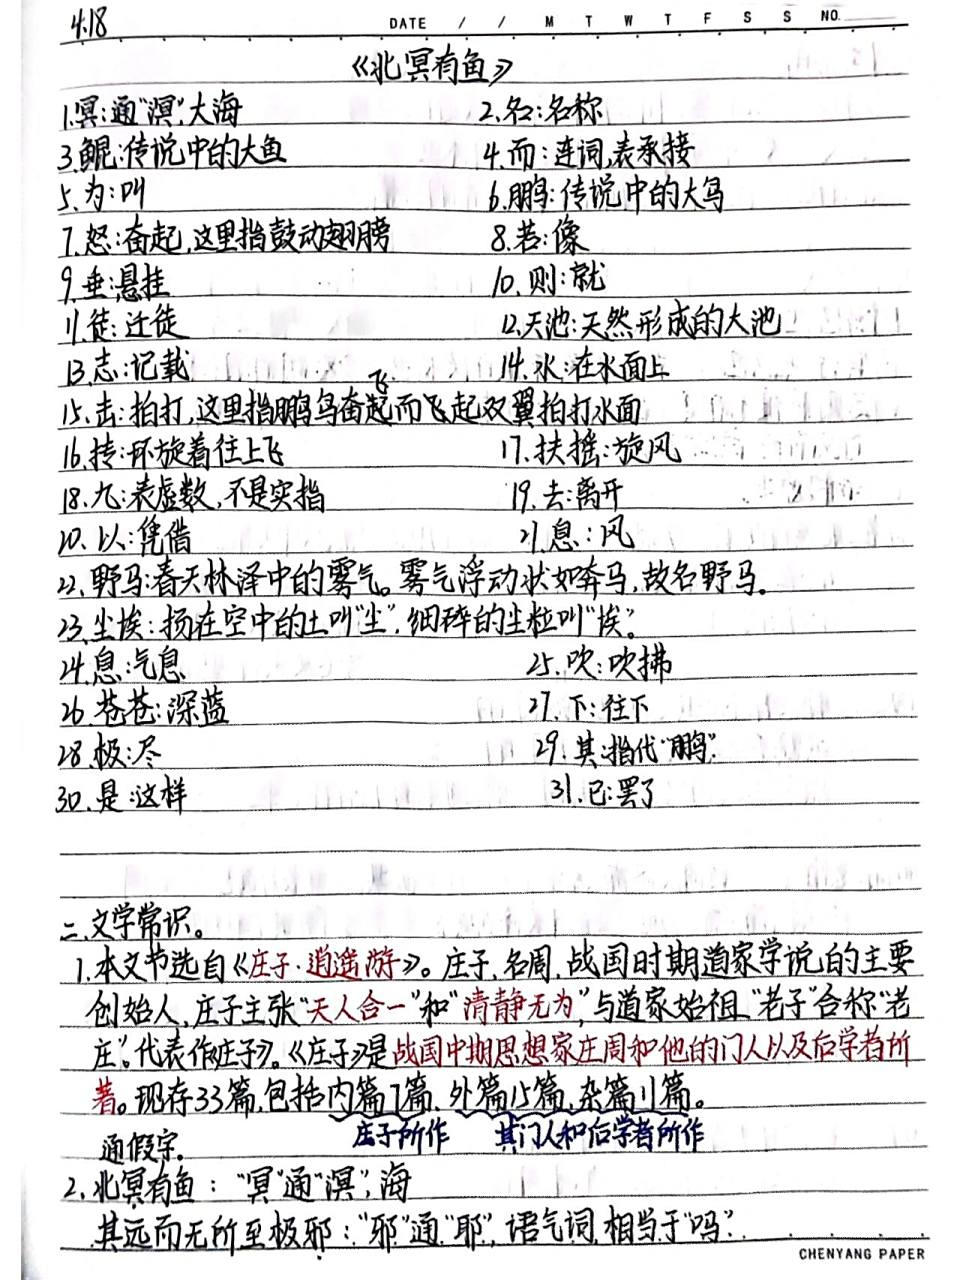 4.18
DATE / / M T W T F S S NO.
《北冥有鱼》
1.冥:通"溟",大海 2.名:名称
3.鲲:传说中的大鱼 4.而:连词,表承接
5.为:叫 6.鹏:传说中的大鸟
7.怒:奋起,这里指鼓动翅膀 8.若:像
9.垂:悬挂 10.则:就
11.徙:迁徙 12.天池:天然形成的大池
13.志:记载 14.水:在水面上
15.击:拍打,这里指鹏鸟奋飞而飞起双翼拍打水面
16.抟:环旋着往上飞 17.扶摇:旋风
18.九:表虚数,不是实指 19.去:离开
20.以:凭借 21.息:风
22.野马:春天林泽中的雾气。雾气浮动状如奔马,故名野马。
23.尘埃:扬在空中的土叫"尘",细碎的尘粒叫"埃"。
24.息:气息 25.吹:吹拂
26.苍苍:深蓝 27.下:往下
28.极:尽 29.其:指代"鹏".
30.是:这样 31.已:罢了
二.文学常识。
1.本文节选自《庄子·逍遥游》。庄子,名周,战国时期道家学说的主要
创始人,庄子主张"天人合一"和"清静无为",与道家始祖"老子"合称"老
庄",代表作《庄子》。《庄子》是战国中期思想家庄周和他的门人以及后学者所
著。现存33篇,包括内篇7篇、外篇15篇、杂篇11篇。
庄子所作 其门人和后学者所作
通假字.
2.北冥有鱼:"冥"通"溟",海
其远而无所至极邪:"邪"通"耶",语气词,相当于"吗".
CHENYANG PAPER